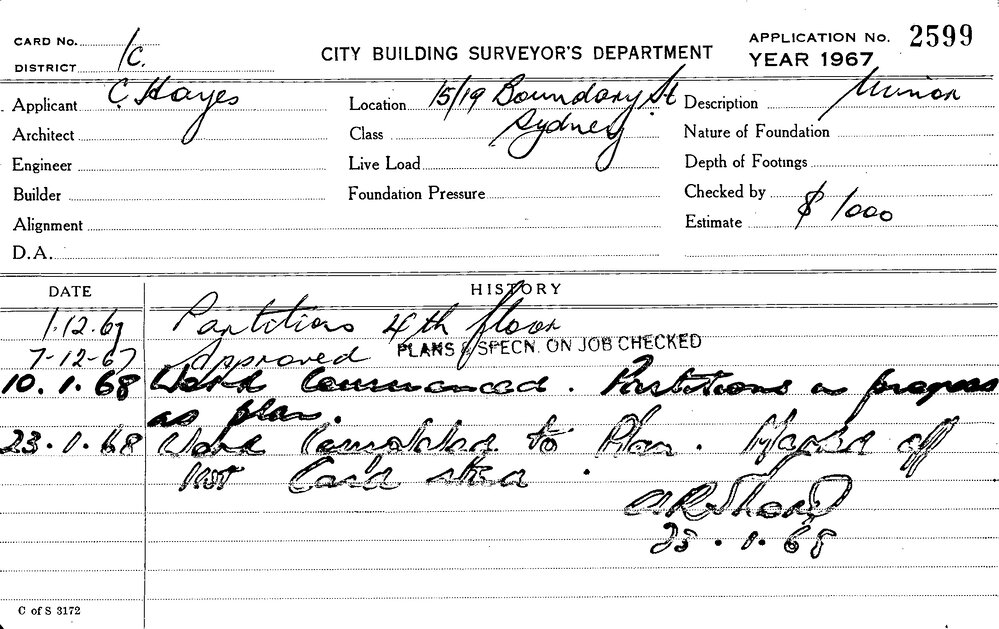 CARD No.
DISTRICT 1c.
CITY BUILDING SURVEYOR'S DEPARTMENT
APPLICATION No. 2599
YEAR 1967
Applicant C Hayes
Location 15/19 Boundary St
Sydney
Description Minor
Architect
Class
Nature of Foundation
Engineer
Live Load
Depth of Footings
Builder
Foundation Pressure
Checked by
Alignment
Estimate $ 1000
D.A.
DATE
HISTORY
1.12.67 Partitions 4th floor
7-12-67 Approved PLANS & SPECN. ON JOB CHECKED
10.1.68 Work Commenced. Partitions in progress
as plan.
23.1.68 Work Completed to Plan. Marked off
Card
23.1.68
C of S 3172